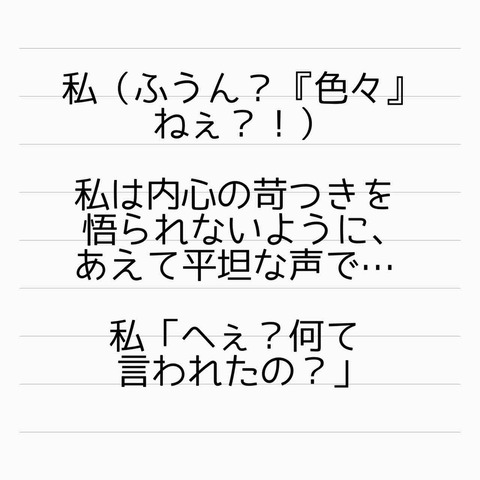 私（ふうん？『色々』
ねぇ？！）
私は内心の苛つきを
悟られないように、
あえて平坦な声で…
私「へぇ？何て
言われたの？」